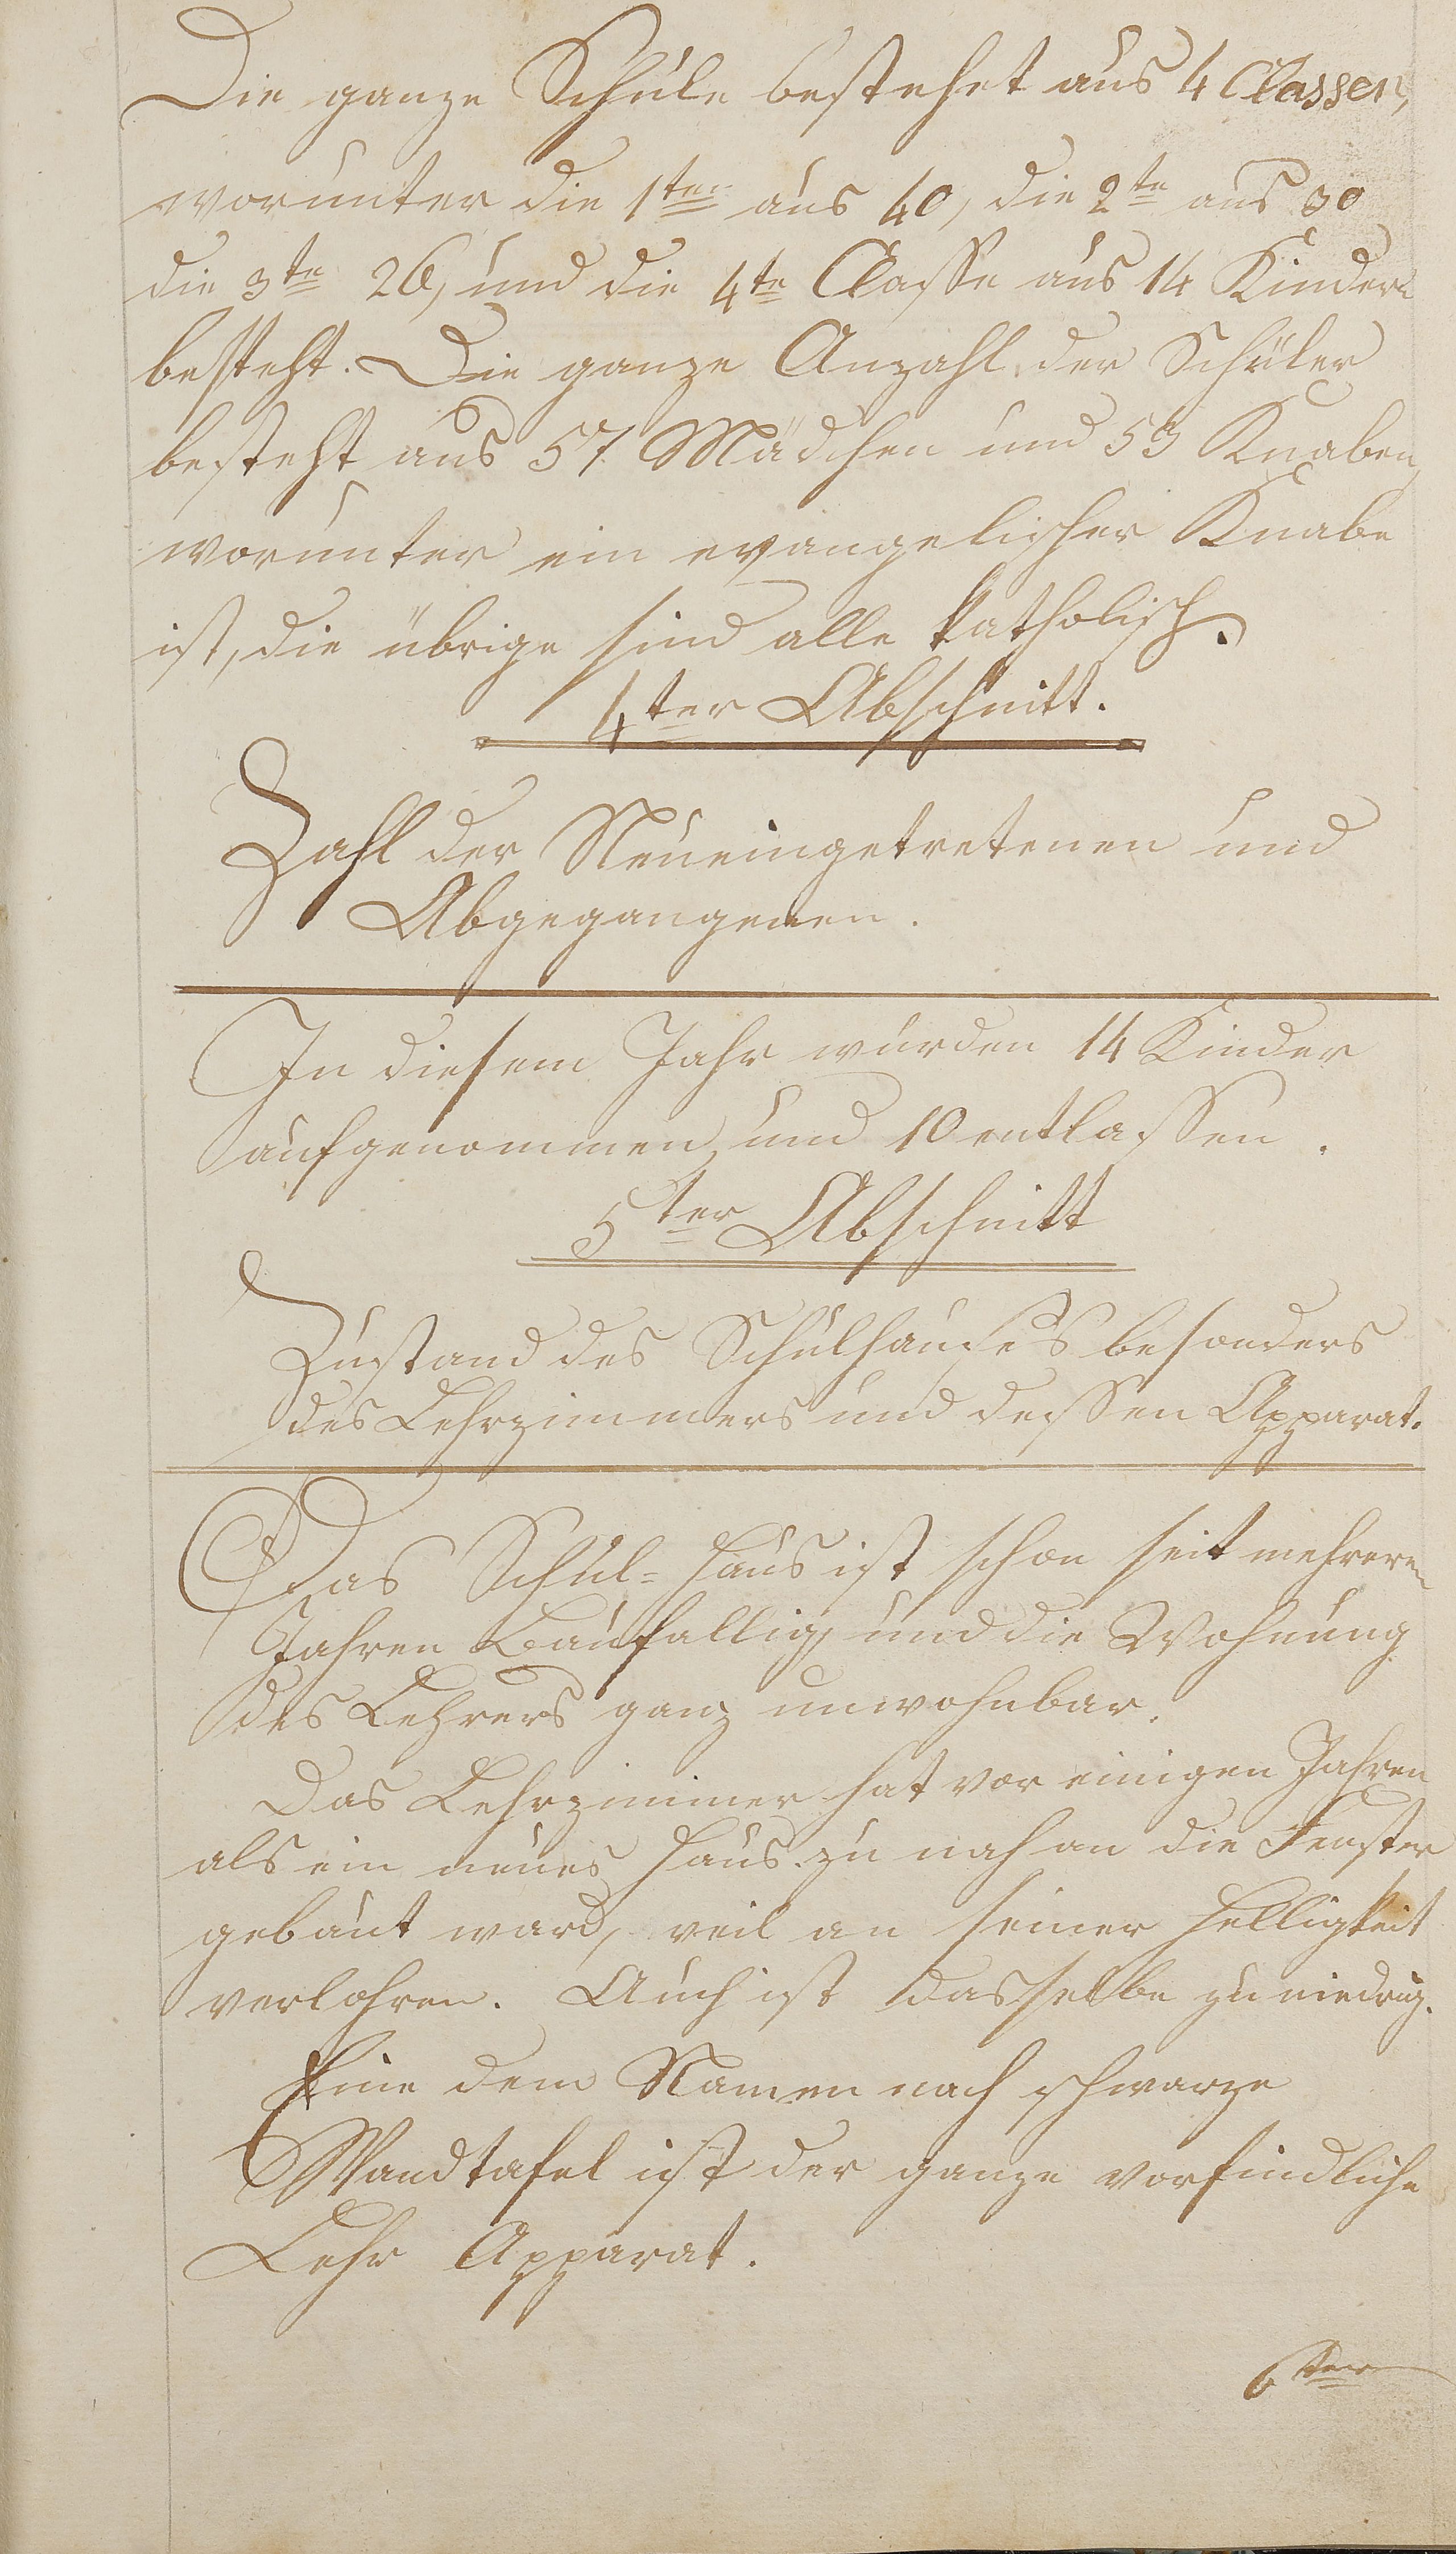 Die ganze Schule bestehet aus 4 Classen,
worunter die 1te aus 40, die 2te aus 30
die 3te 26, und die 4te Classe aus 14 Kinder
besteht. Die ganze Anzahl der Schüler
besteht aus 57 Mädchen und 53 Knaben,
worunter ein evangelischer Knabe
ist, die übrige sind alle katholisch.
4ter Abschnitt.
Zahl der Neueingetretenen und
Abgegangenen.
In diesem Jahr wurden 14 Kinder
aufgenommen und 10 entlassen.
5ter Abschnitt
Zustand des Schulhauses besonders
des Lehrzimmers und dessen Apparat.
Das Schul-Haus ist schon seit mehreren
Jahren Baufallig und die Wohnung
des Lehrers ganz unwohnbar.
Das Lehrzimmer hat vor einigen Jahren
als ein neues Haus zu nah an die Fenster
gebaut ward, viel an seiner Helligkeit
verlohren. Auch ist dasselbe zu niedrig.
Eine dem Namen nach schwarze
Wandtafel ist der ganze vorfindliche
Lehr Apparat.
6ter